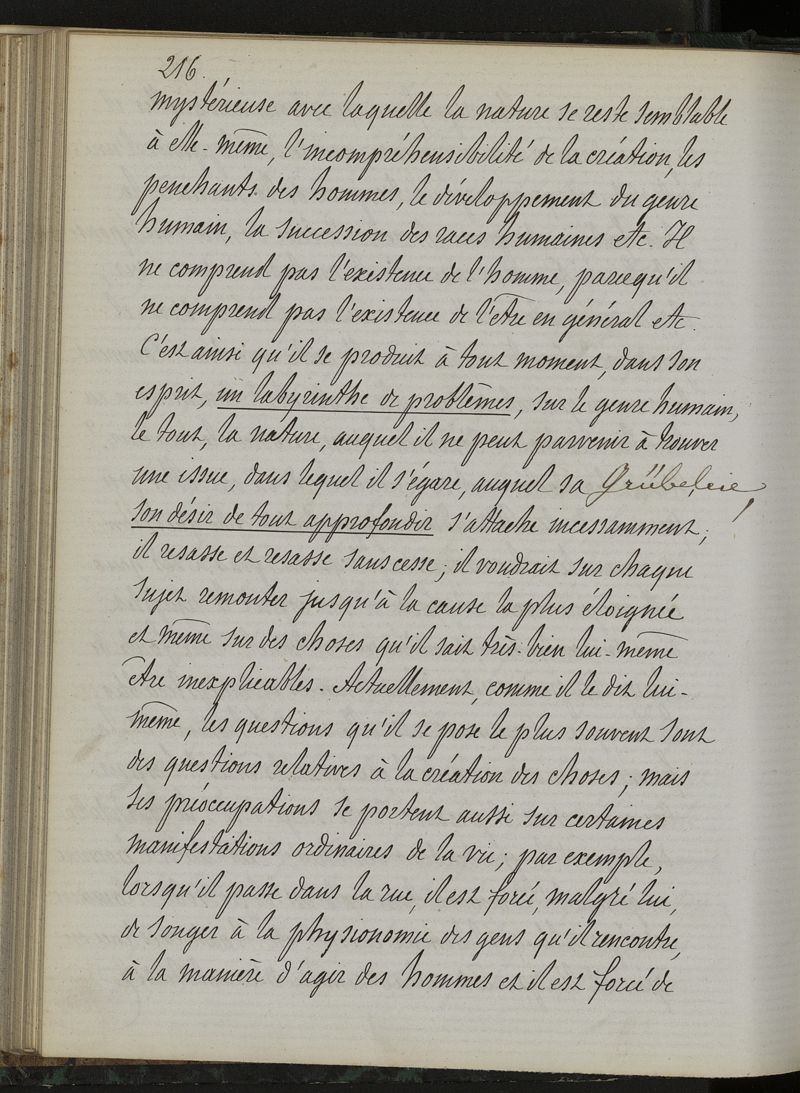 216.
mystérieuse avec laquelle la nature se reste semblable
à elle-même, l'incompréhensibilité de la création, les
penchants des hommes, le développement du genre
humain, la succession des races humaines etc. Il
ne comprend pas l'existence de l'homme, parcequ'il
ne comprend pas l'existence de l'Être en général etc.
C'est ainsi qu'il se produit à tout moment, dans son
esprit, un labyrinthe de problèmes, sur le genre humain,
le tout, la nature, auquel il ne peut parvenir à trouver
une issue, dans lequel il s'égare, auquel sa Grübeleie,
son désir de tout approfondir s'attache incessamment;
il resasse et resasse sans cesse; il voudrait sur chaque
sujet remonter jusqu'à la cause la plus éloignée
et même sur des choses qu'il sait très-bien lui-même
être inexplicables. Actuellement, comme il le dit lui-
même, les questions qu'il se pose le plus souvent sont
des questions relatives à la création des choses; mais
ses préoccupations se portent aussi sur certaines
manifestations ordinaires de la vie; par exemple,
lorsqu'il passe dans la rue, il est forcé, malgré lui,
de songer à la physionomie des gens qu'il rencontre,
à la manière d'agir des hommes et il est forcé de